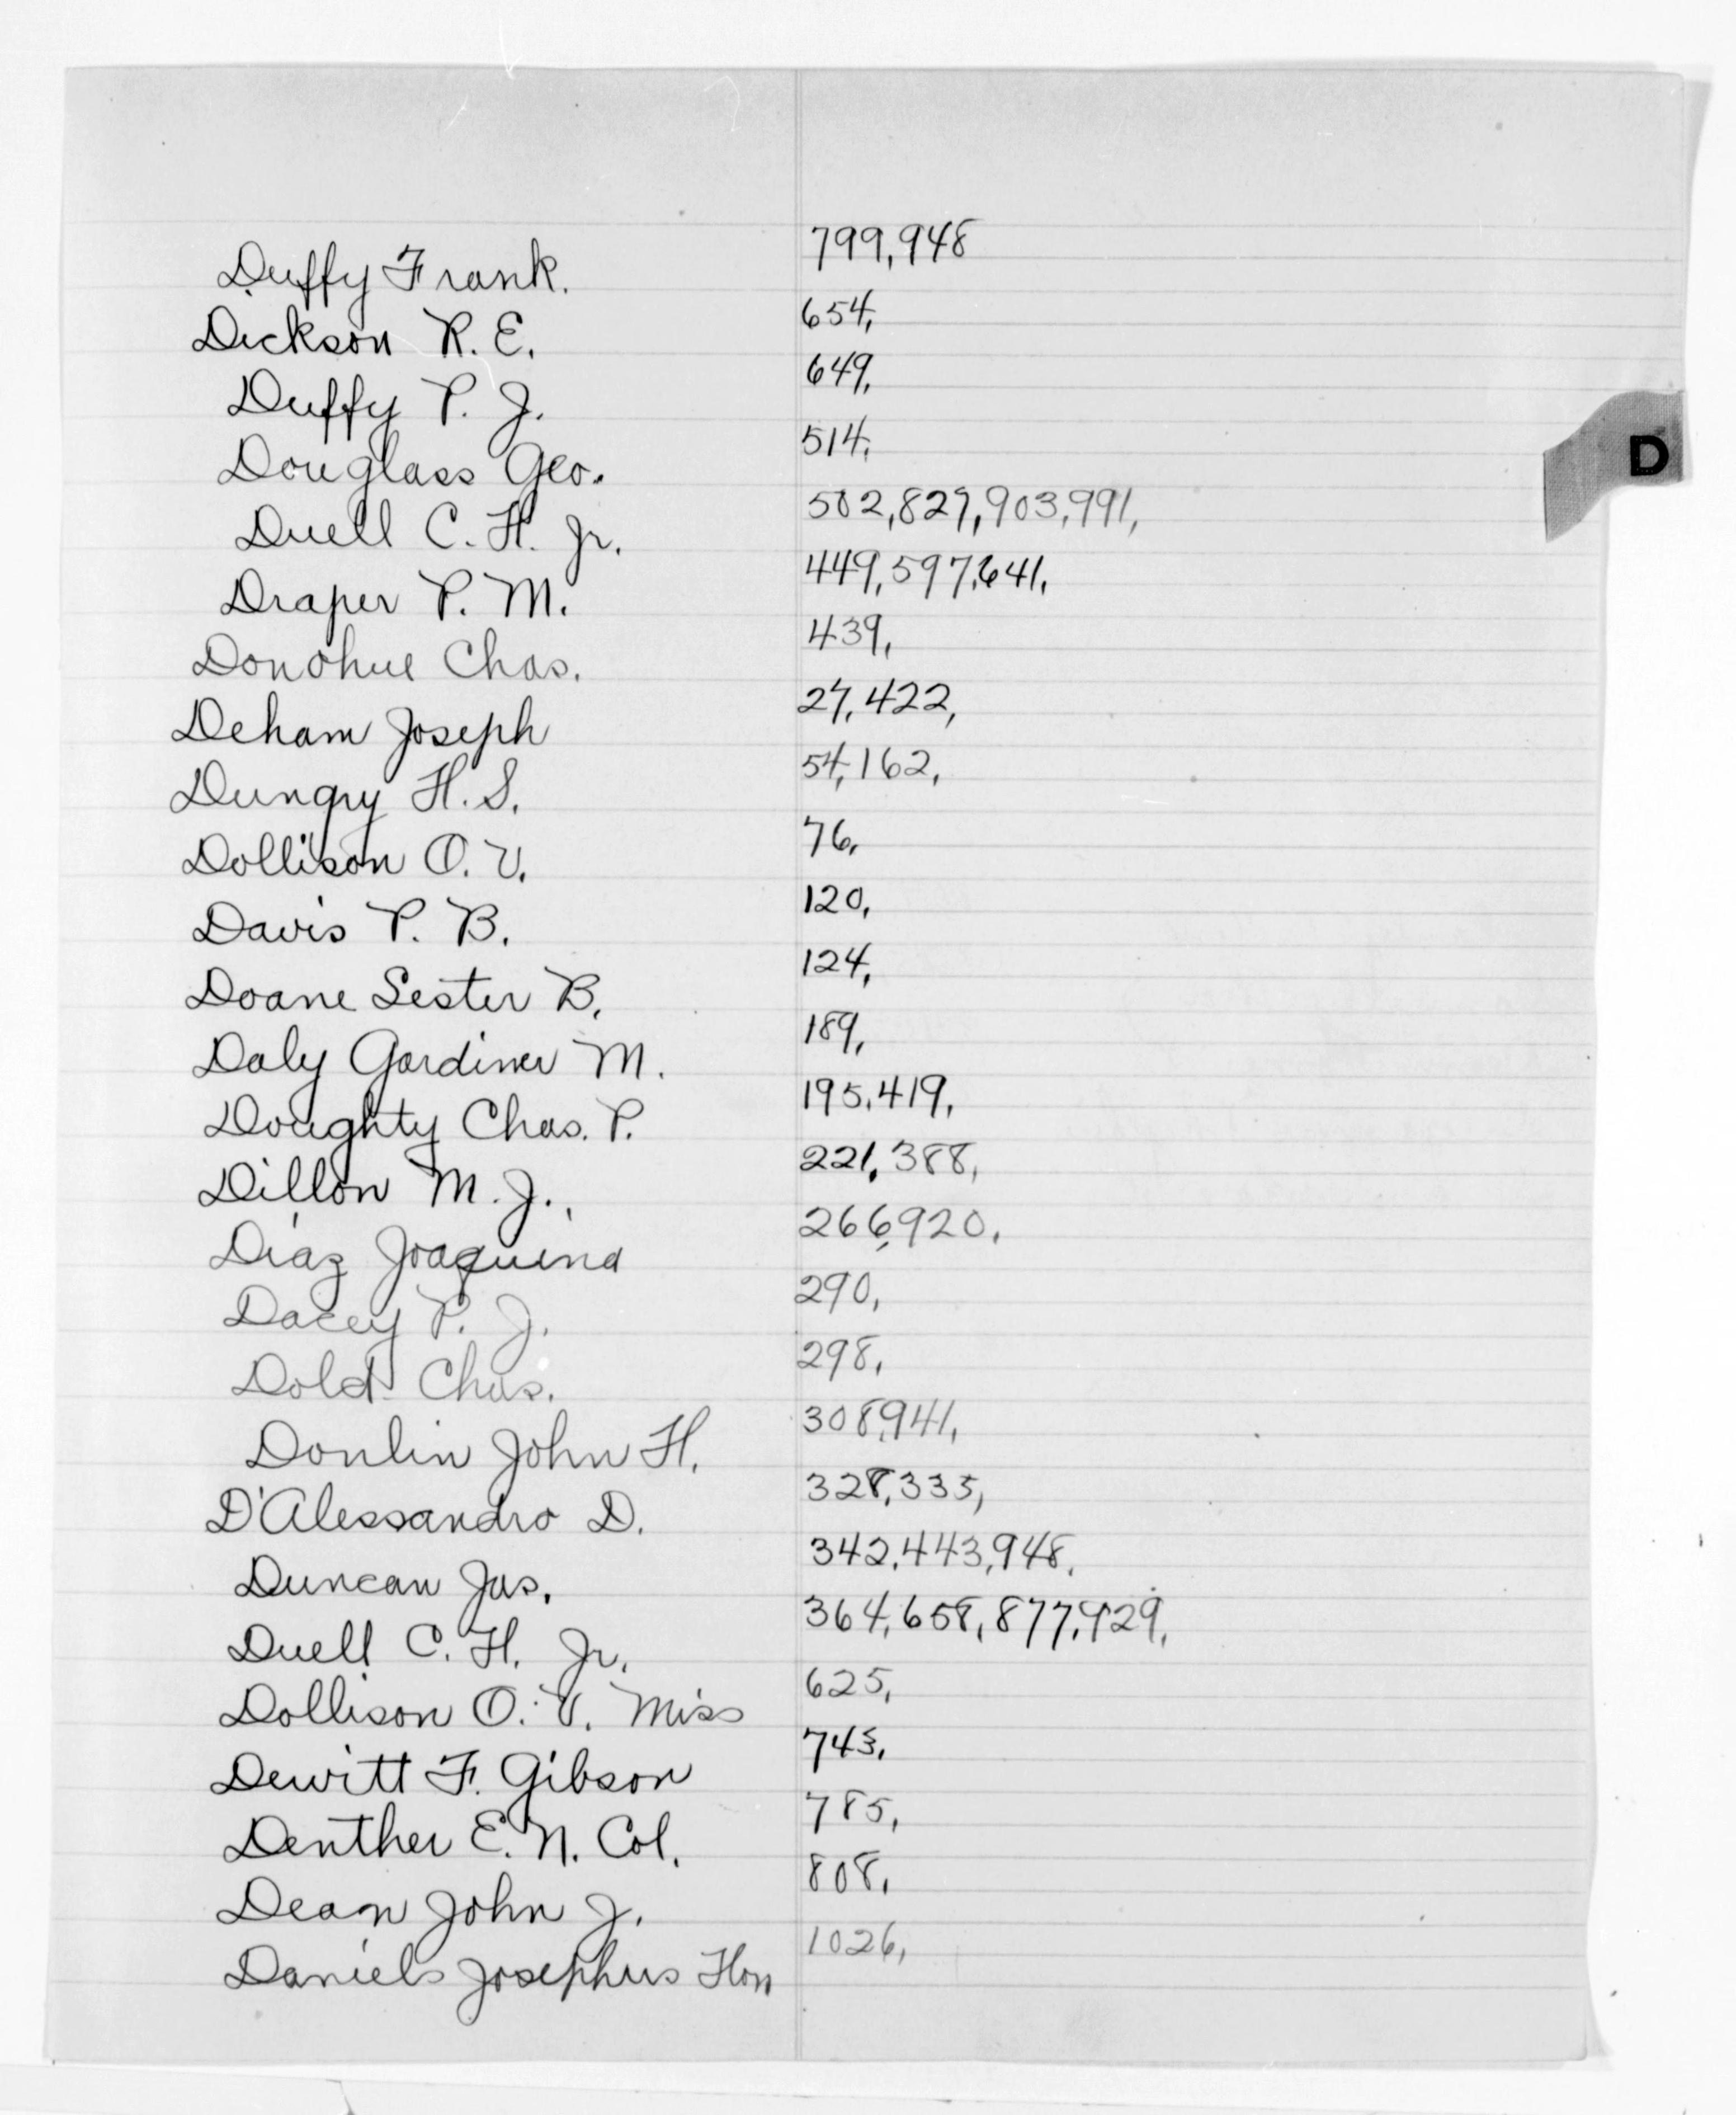 Duffy Frank. 799,948
Dickson R. E. 654,
Duffy P. J. 649,
Douglass Geo. 514,
Duell C. H. Jr. 502,827,903,991,
Draper P. M. 449,597,641,
Donohue Chas. 439,
Deham Joseph 27,422,
Dungry H. S. 54,162,
Dollison O. V. 76,
Davis P. B. 120,
Doane Lester B. 124,
Daly Gardiner M. 189,
Doughty Chas. P. 195,419,
Dillon M. J., 221,388,
Diaz Joaquina 266,920,
Dacey P. J. 290,
Dold Chas. 298,
Donlin John H. 308,941,
D'Alessandro D. 328,335,
Duncan Jas. 342,443,948,
Duell C. H. Jr. 364,658,877,929,
Dollison O. V. Miss 625,
Dewitt F. Gibson 743,
Denther E. N. Col. 785,
Dean John J. 808,
Daniels Josephus Hon 1026,
D